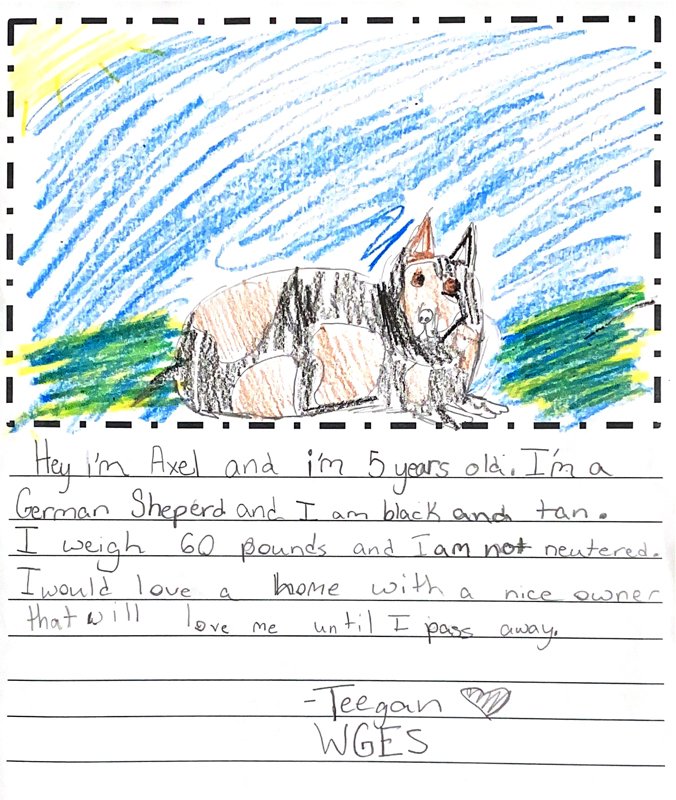 Hey i'm Axel and i'm 5 years old. I'm a
German Sheperd and I am black and tan.
I weigh 60 pounds and I am not neutered.
I would love a home with a nice owner
that will love me until I pass away.
-Teegan
WGES